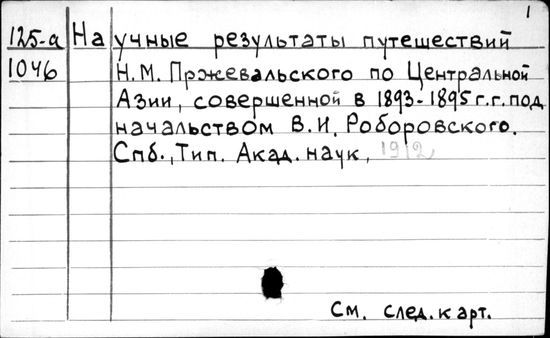 1
125-а Научные результаты путешествий
1046 Н.М. Пржевальского по Центральной
Азии, совершенной в 1893-1895 г.г. под
начальством В.И. Роборовского.
Спб., Тип. Акад. наук, 1912
См. след. карт.